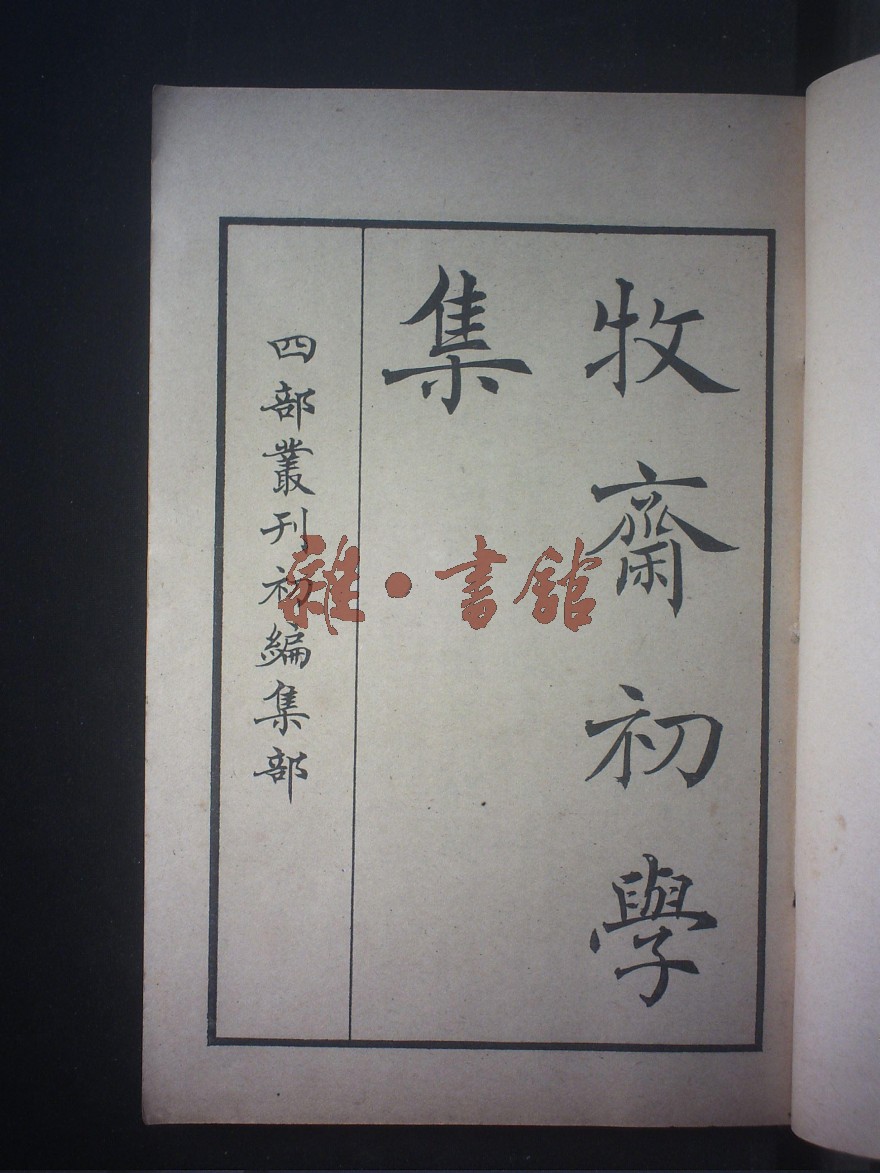 牧齋初學
集
四部叢刊初編集部
雜·書館